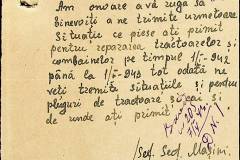 Am onoare a vă ruga să
binevoiți a ne trimite următoarele
Situație ce piese ați primit
pentru repararea tractoarelor și
combainelor pe timpul 1/I-942
până la 1/I-943 tot odată ne
veți tremite situațiile și pentru
pluguri de tractoare și cai și
de unde ați primit
Șef. Secț. Mașini